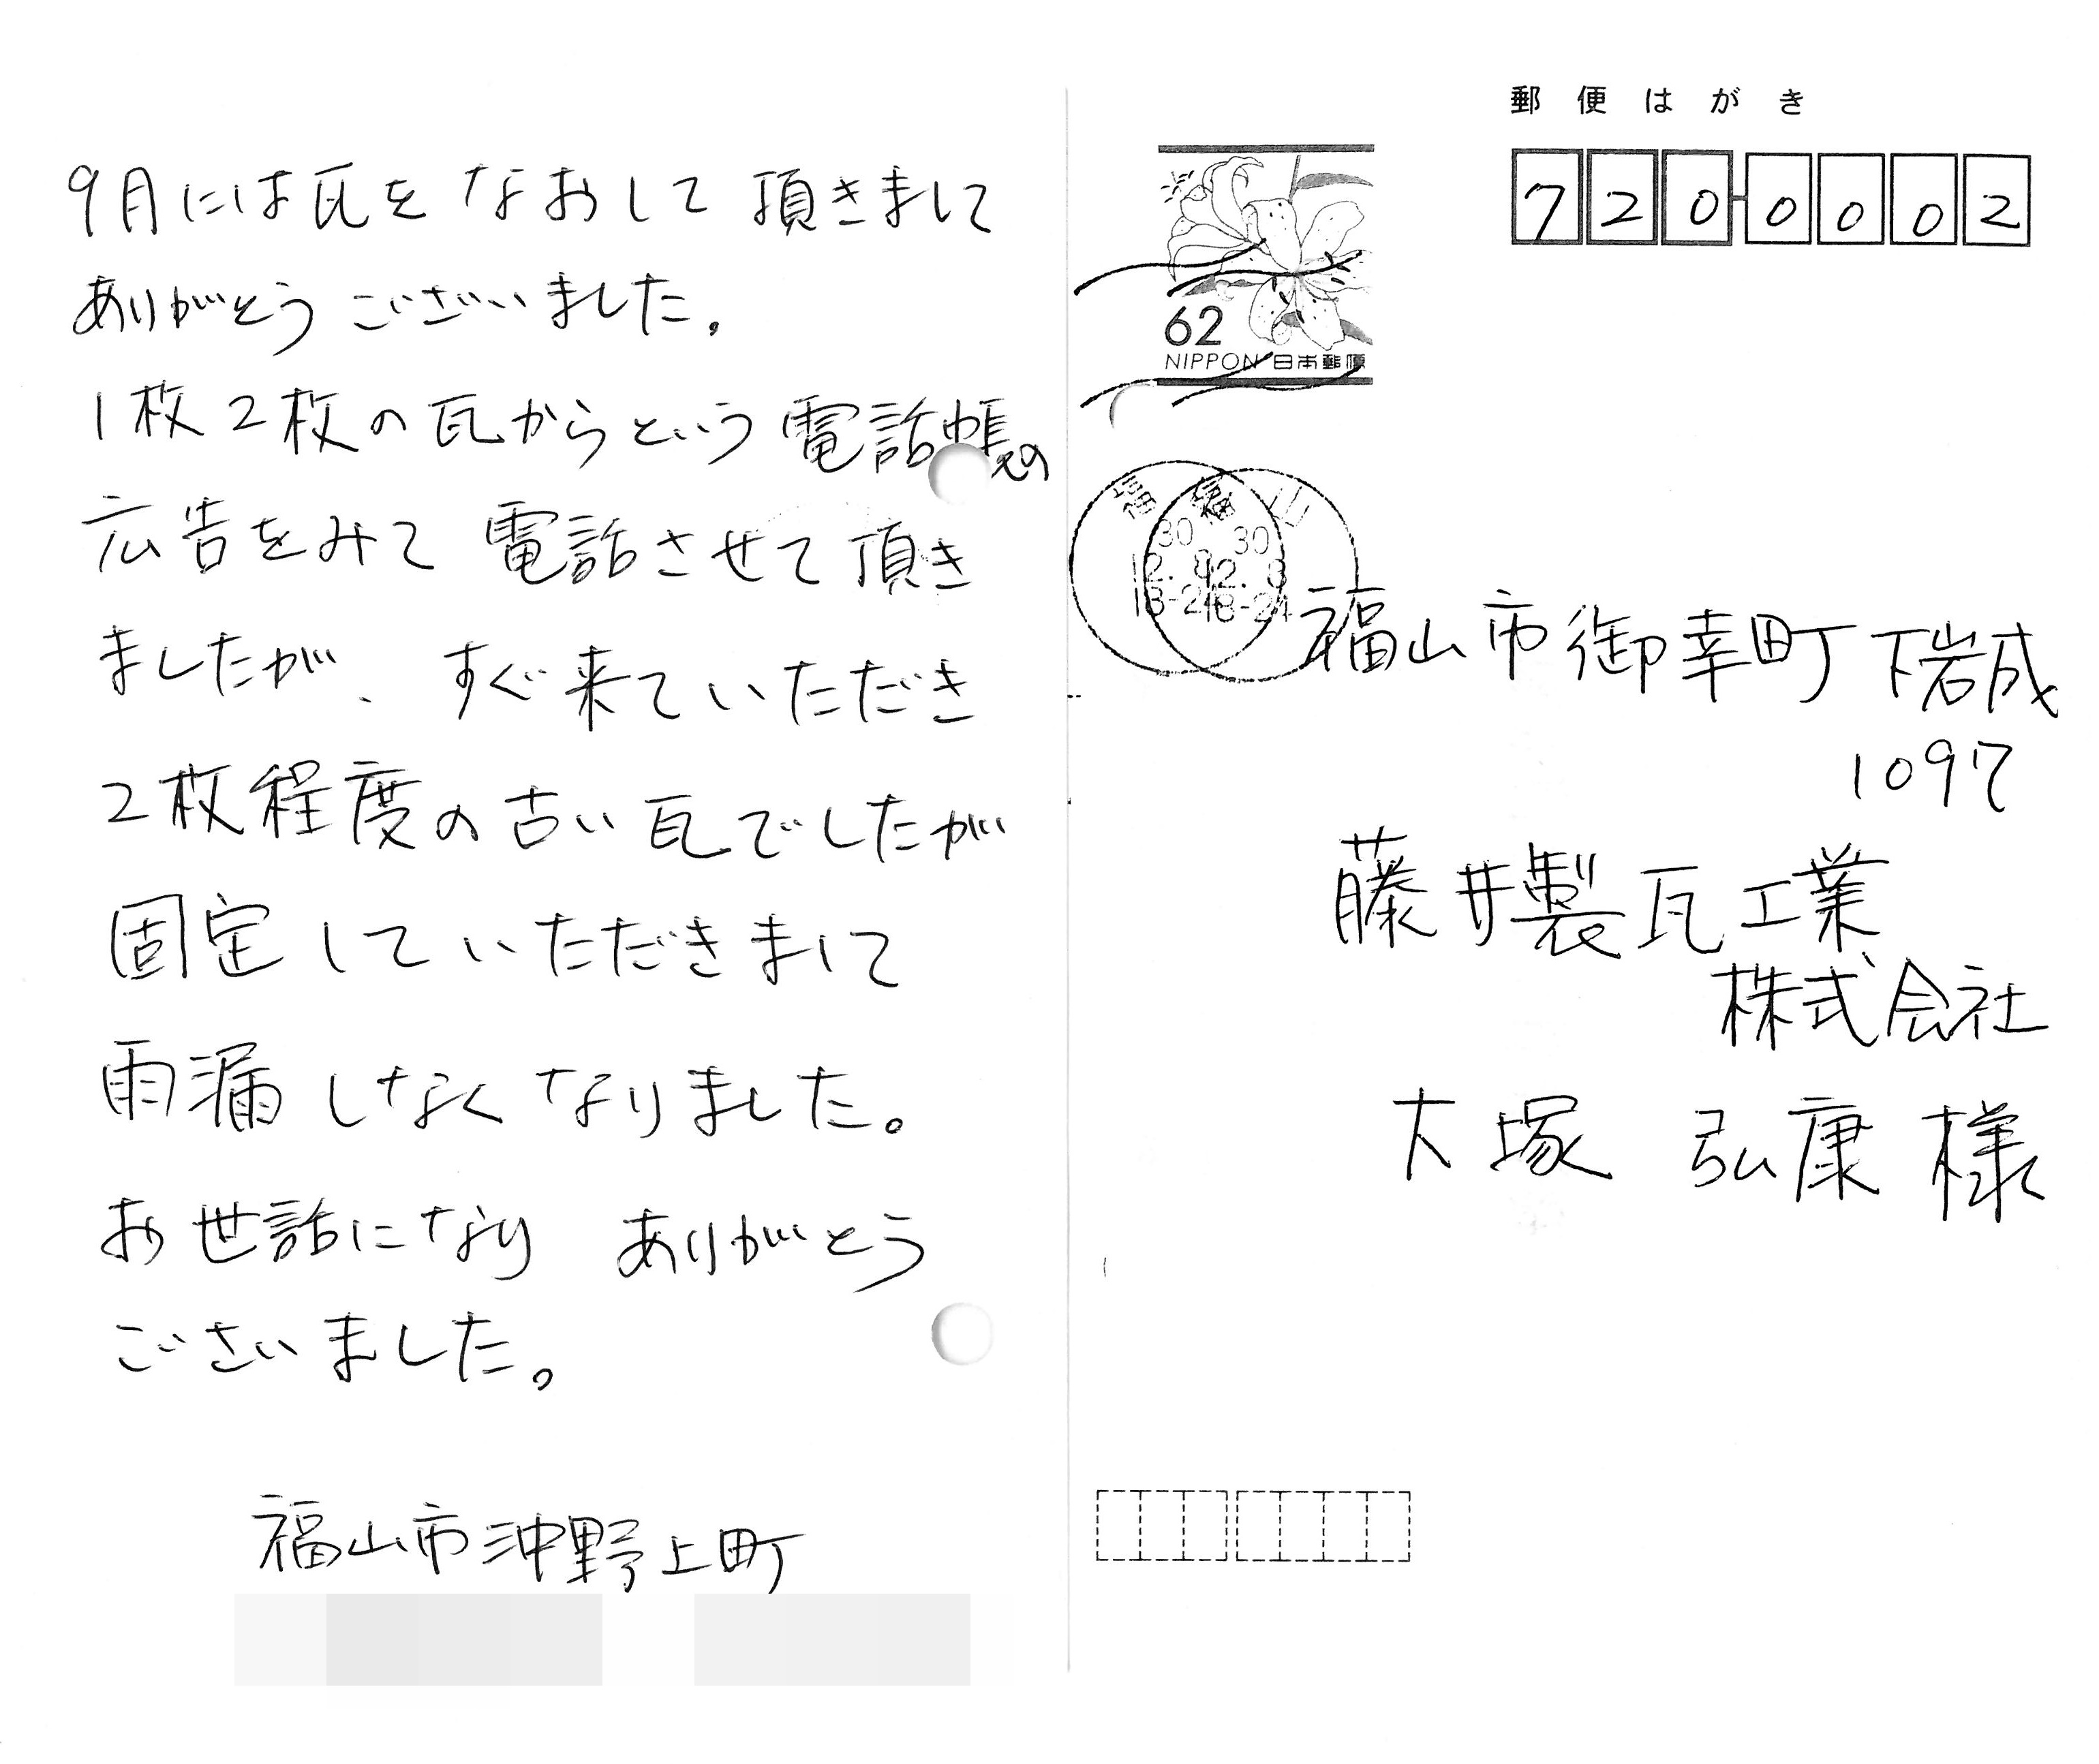 9月には瓦をなおして頂きまして
ありがとうございました。
1枚2枚の瓦からという電話帳の
広告をみて電話させて頂き
ましたが、すぐ来ていただき
2枚程度の古い瓦でしたが
固定していただきまして
雨漏しなくなりました。
お世話になりありがとう
ございました。
福山市沖野上町
郵便はがき
720-0002
62
NIPPON 日本郵便
福山
30
12.
18-24
福山市御幸町下岩成
1097
藤井製瓦工業
株式会社
大塚 弘康 様